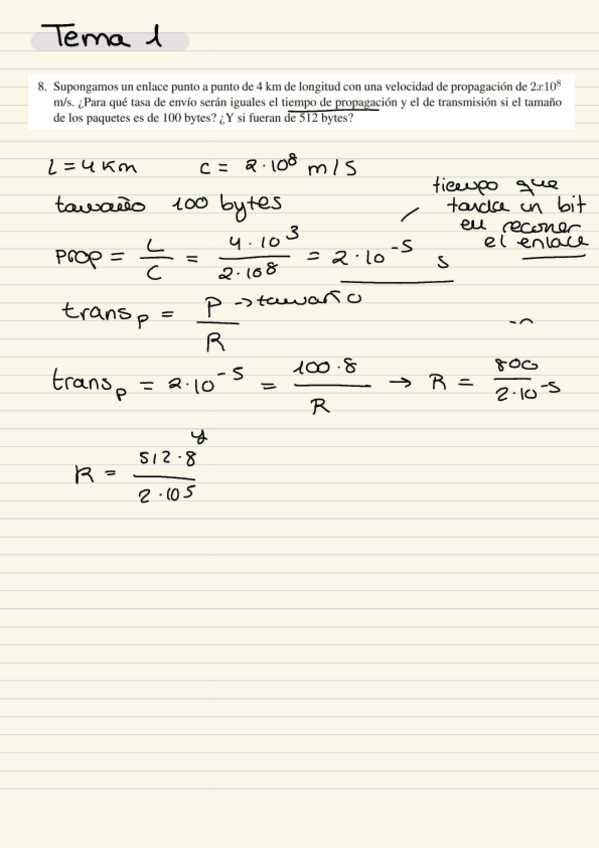 Tema 1
8. Supongamos un enlace punto a punto de 4 km de longitud con una velocidad de propagación de 2x10⁸
m/s. ¿Para qué tasa de envío serán iguales el tiempo de propagación y el de transmisión si el tamaño
de los paquetes es de 100 bytes? ¿Y si fueran de 512 bytes?
L = 4 Km   c = 2·10⁸ m/s
tamaño 100 bytes
tiempo que
tarda un bit
en recorrer
el enlace
prop = L/C = 4·10³/2·10⁸ = 2·10⁻⁵ s
trans_p = P/R → tamaño
trans_p = 2·10⁻⁵ = 100·8/R → R = 800/2·10⁻⁵
y
R = 512·8/2·10⁵